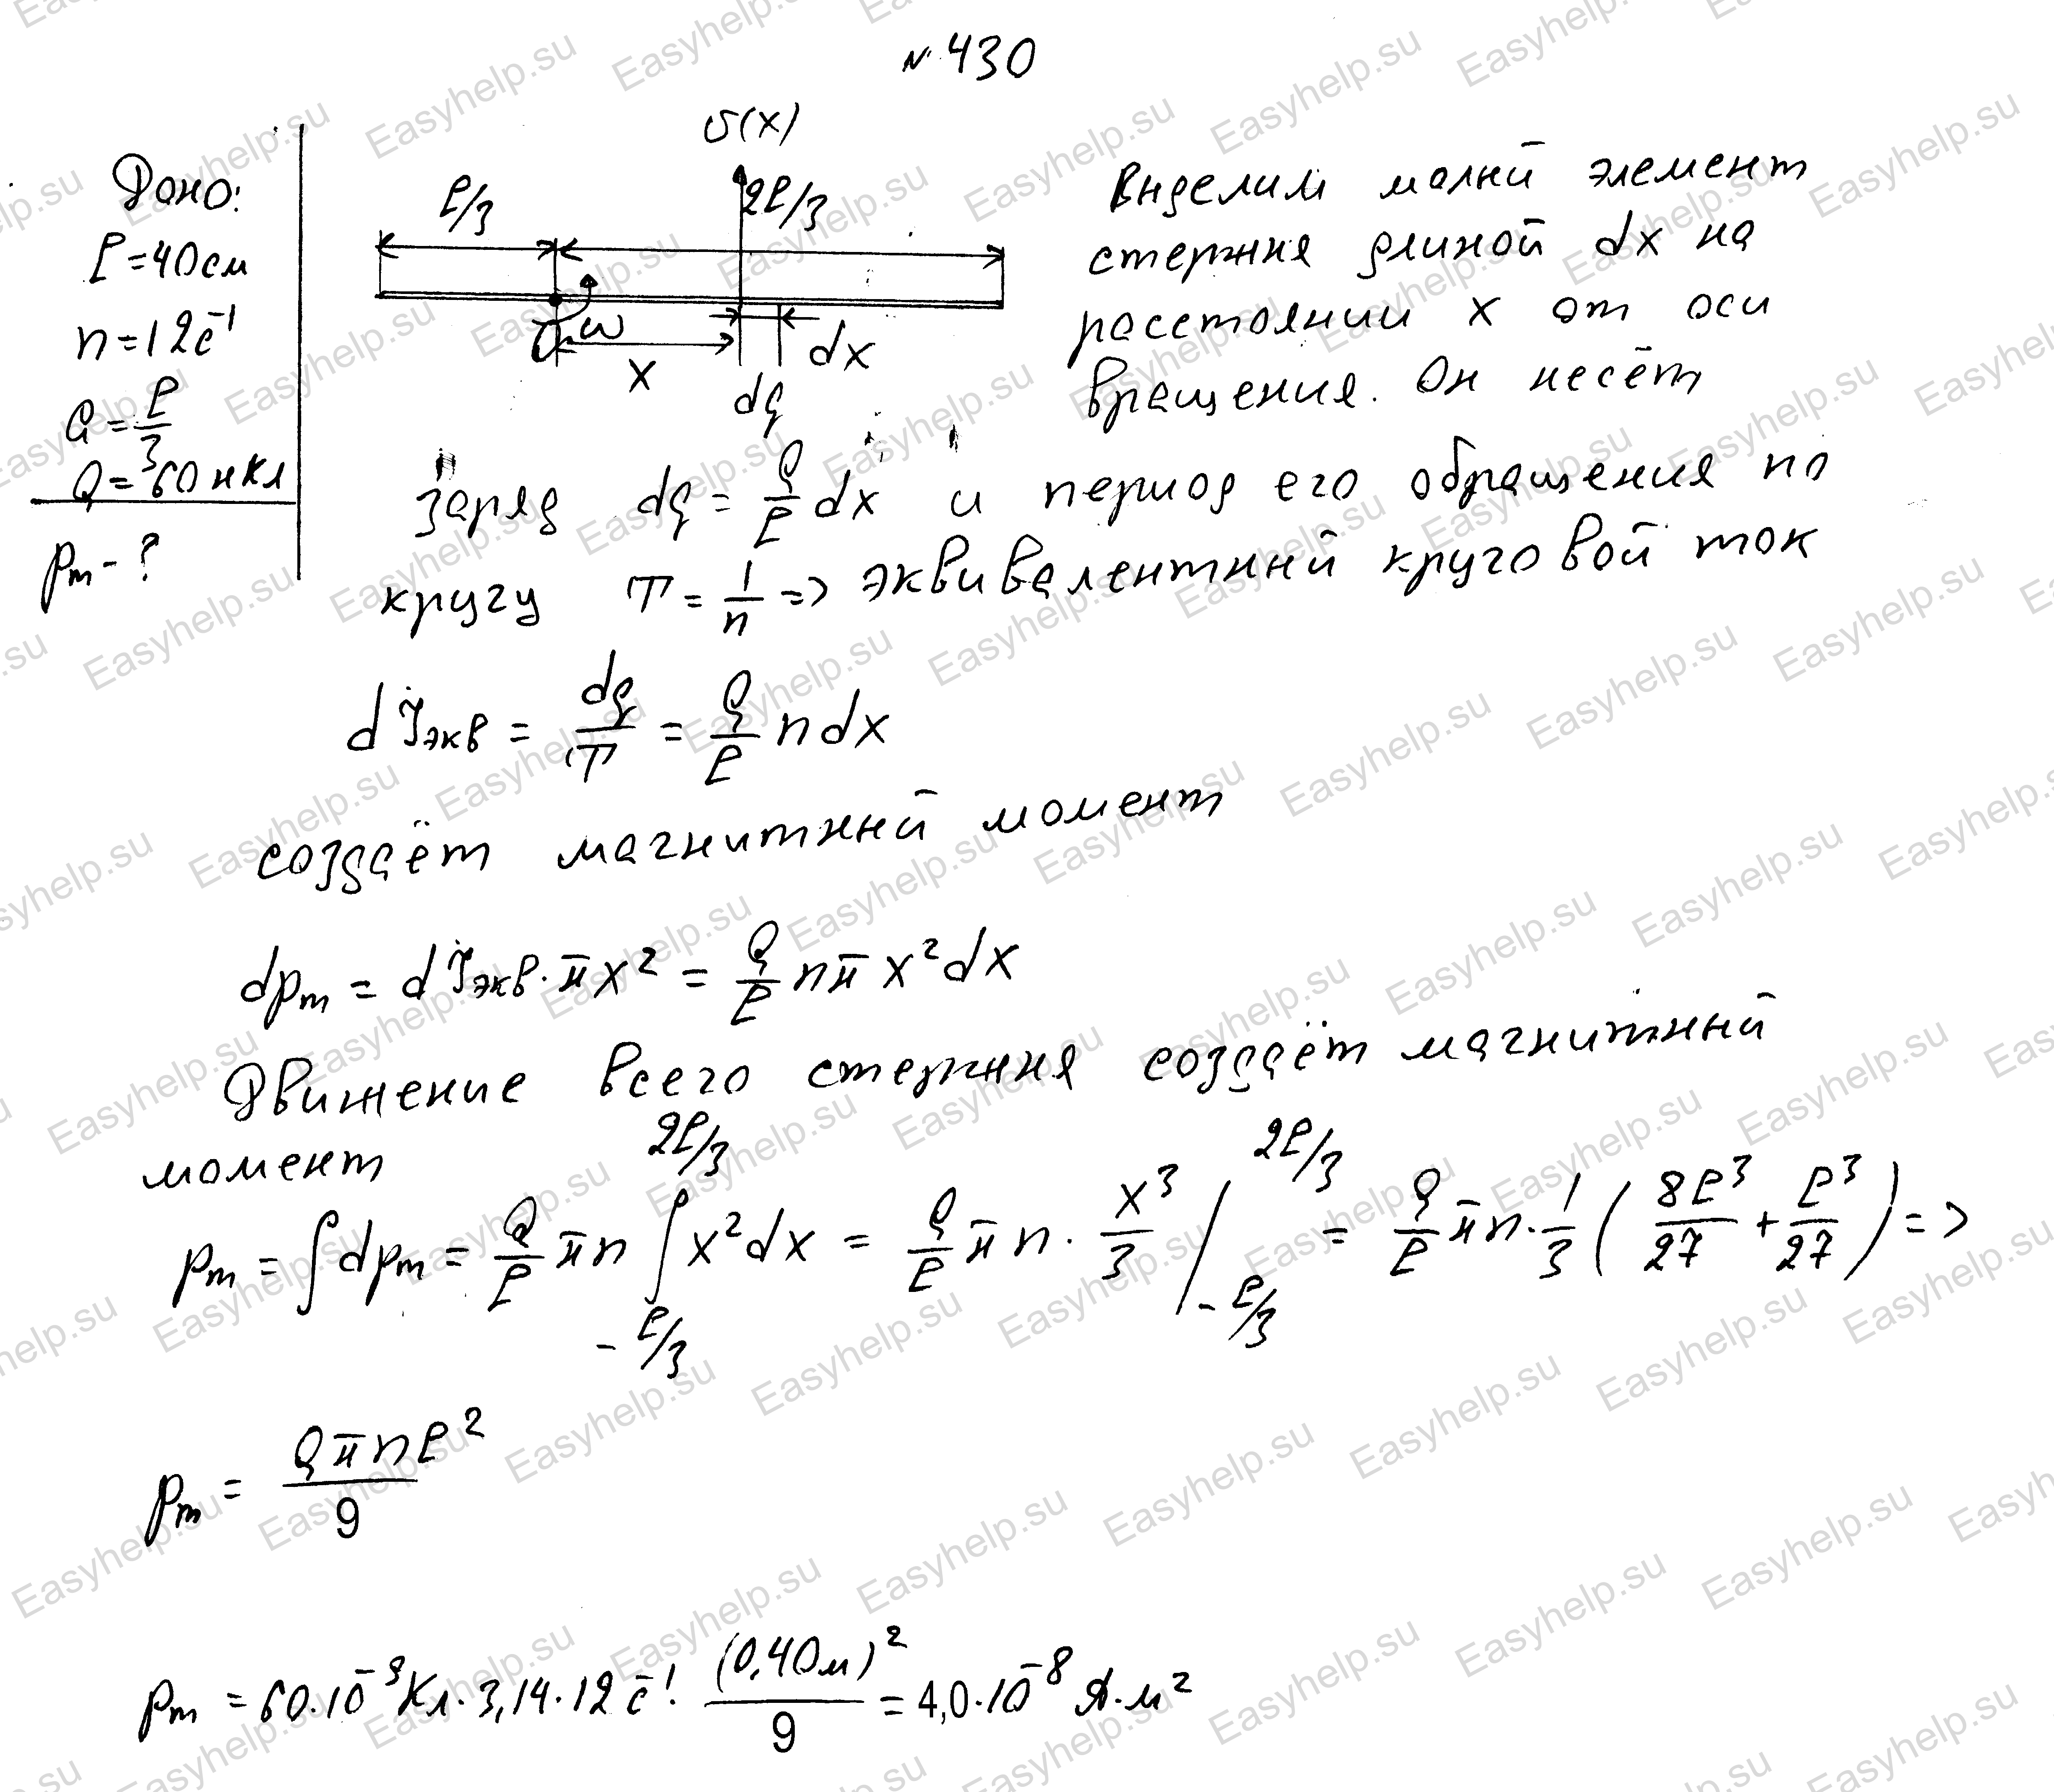 № 430
Дано:
l = 40 см
n = 12 с⁻¹
a = l/3
Q = 60 нКл
pₘ - ?
υ(x)
l/3
2l/3
ω
x
dx
dq
Выделим малый элемент
стержня длиной dx на
расстоянии x от оси
вращения. Он несёт
заряд dq = Q/l dx и период его обращения по
кругу T = 1/n => эквивалентный круговой ток
dIэкв = dq/T = Q/l n dx
создаёт магнитный момент
dpₘ = dIэкв · πx² = Q/l nπ x² dx
Движение всего стержня создаёт магнитный
момент
pₘ = ∫dpₘ = Q/l πn ∫_{-l/3}^{2l/3} x² dx = Q/l πn · x³/3 /_{-l/3}^{2l/3} = Q/l πn · 1/3 (8l³/27 + l³/27) =>
pₘ = Qπnl²/9
pₘ = 60·10⁻⁹ Кл · 3,14 · 12 с⁻¹ · (0,40 м)²/9 = 4,0·10⁻⁸ А·м²
Easyhelp.su